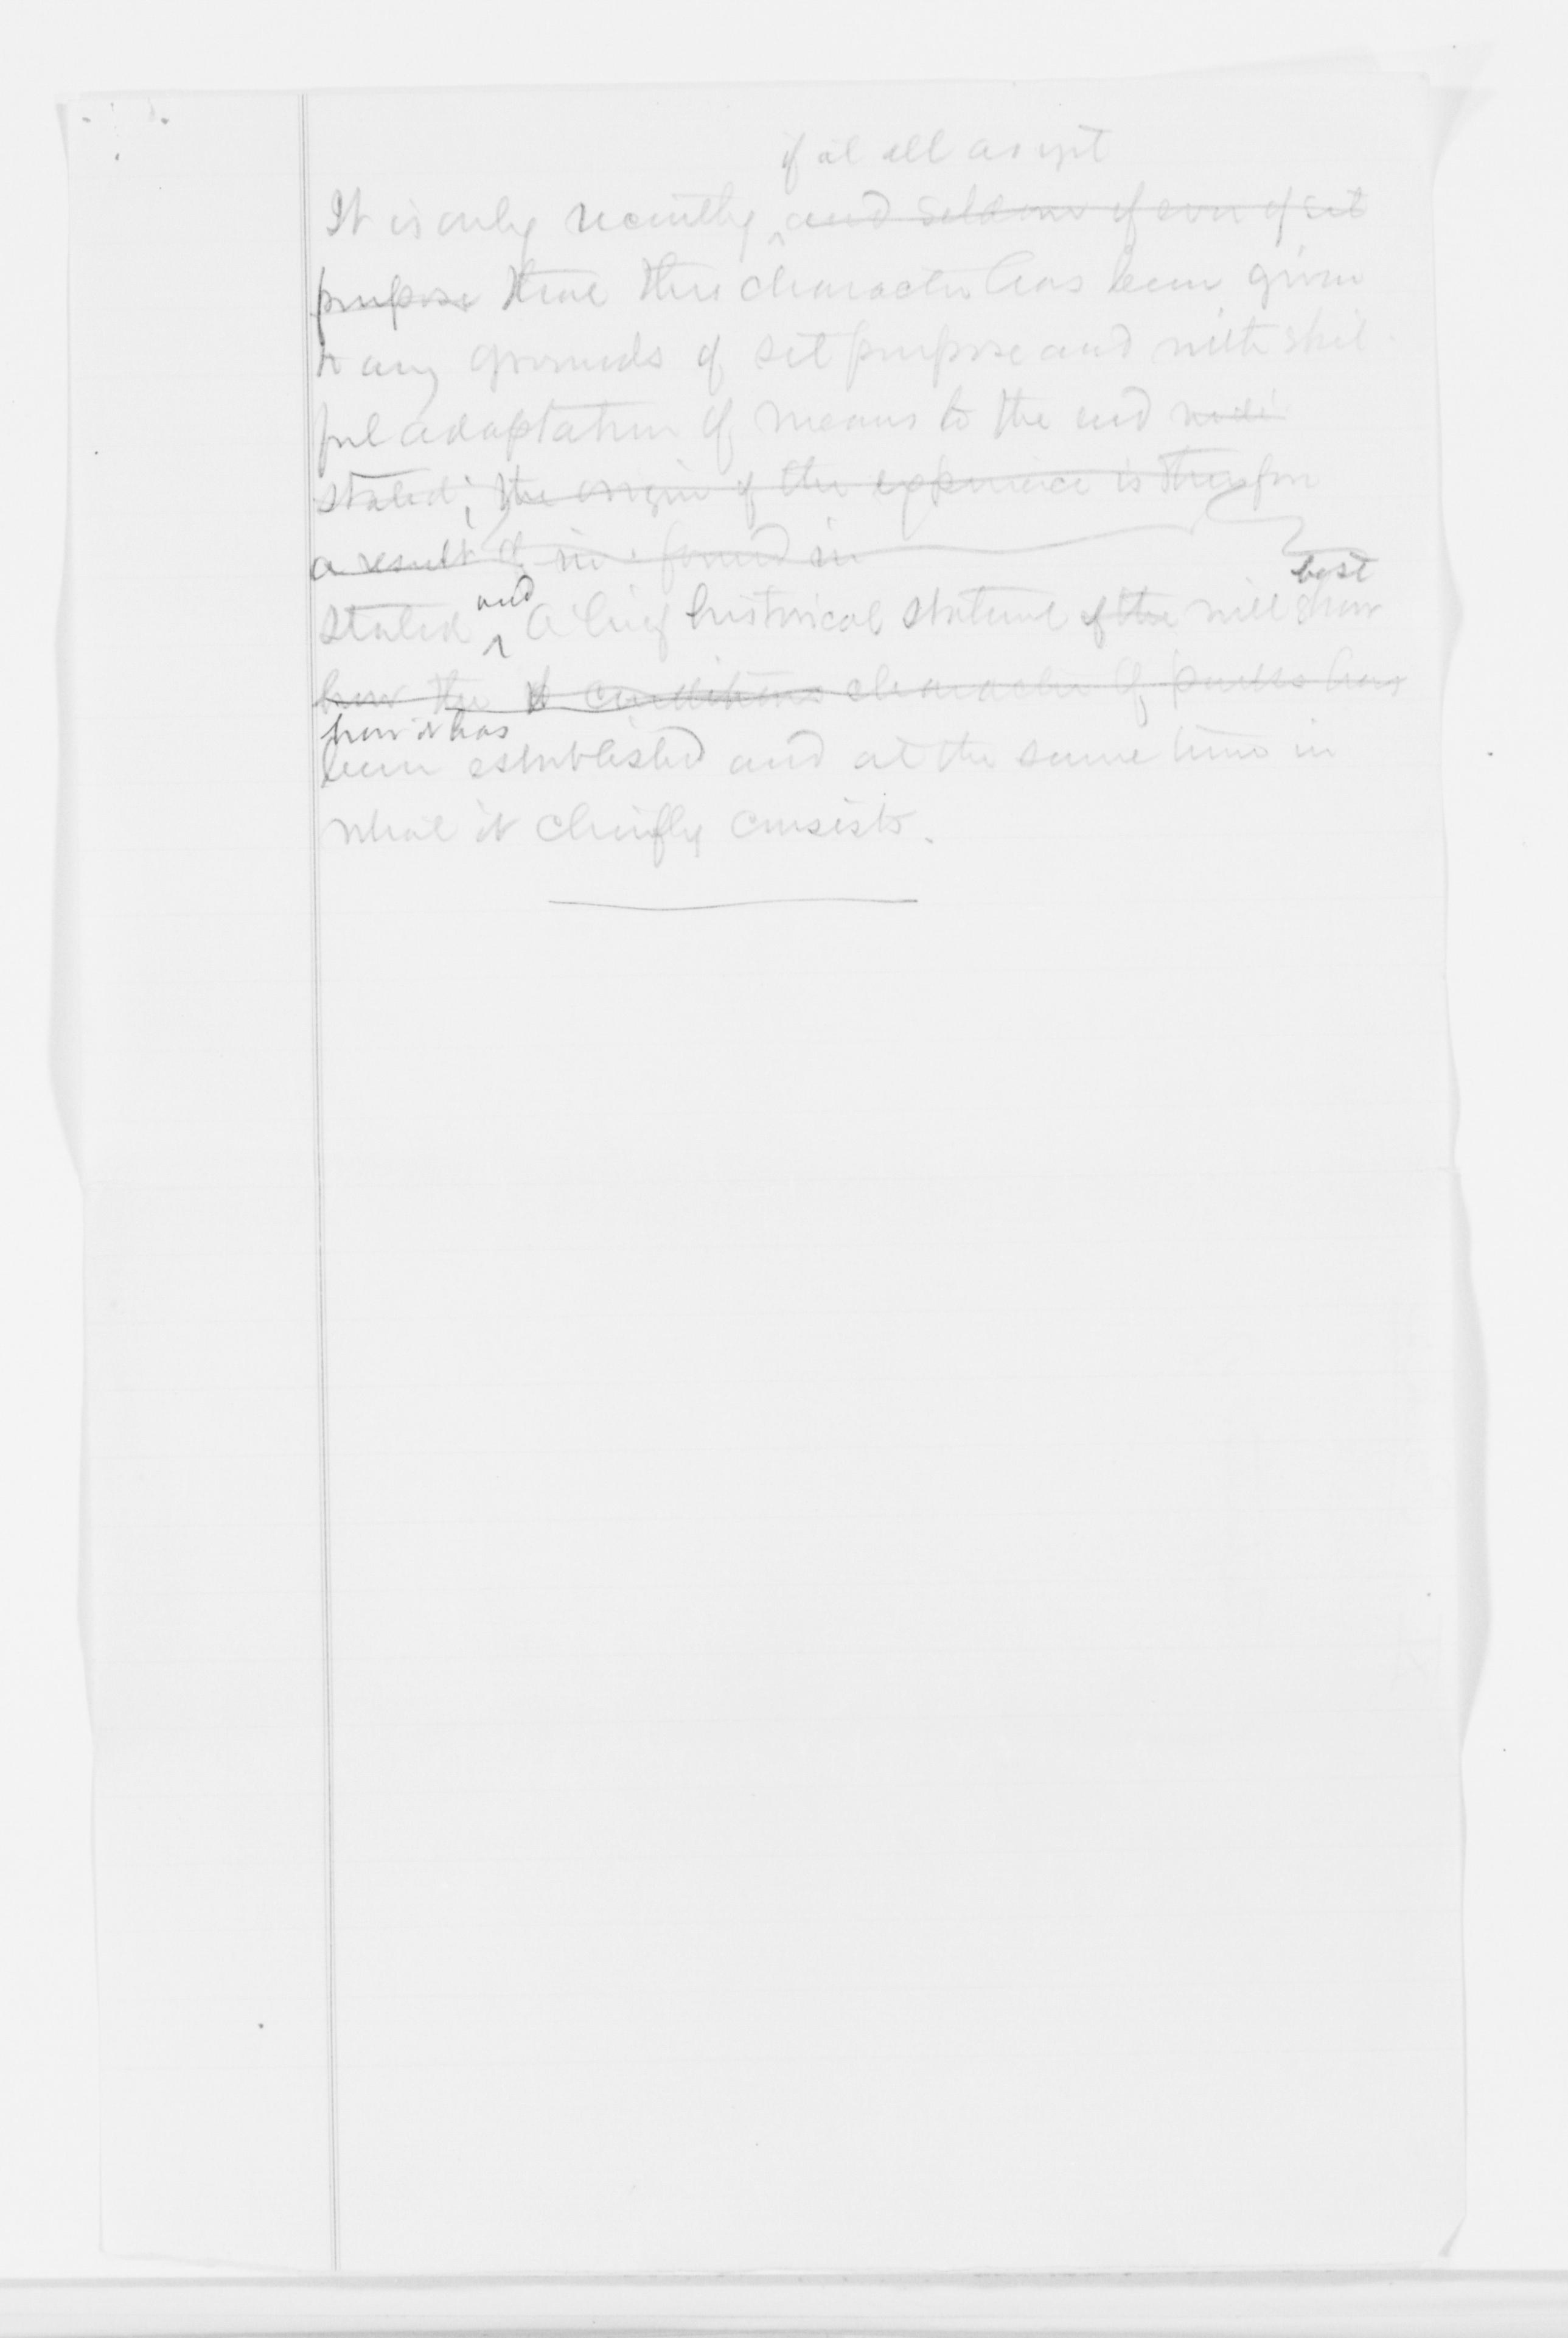 if at all as yet
It is only recently and seldom if ever of set
purpose that this character has been given
to any grounds of set purpose and with skil-
ful adaptation of means to the end
stated; the origin of the experience is therefore
a result of in found in
best
and
stated a brief historical statement of the will show
how the conditions character of parks has
how it has
been established and at the same time in
what it chiefly consists.